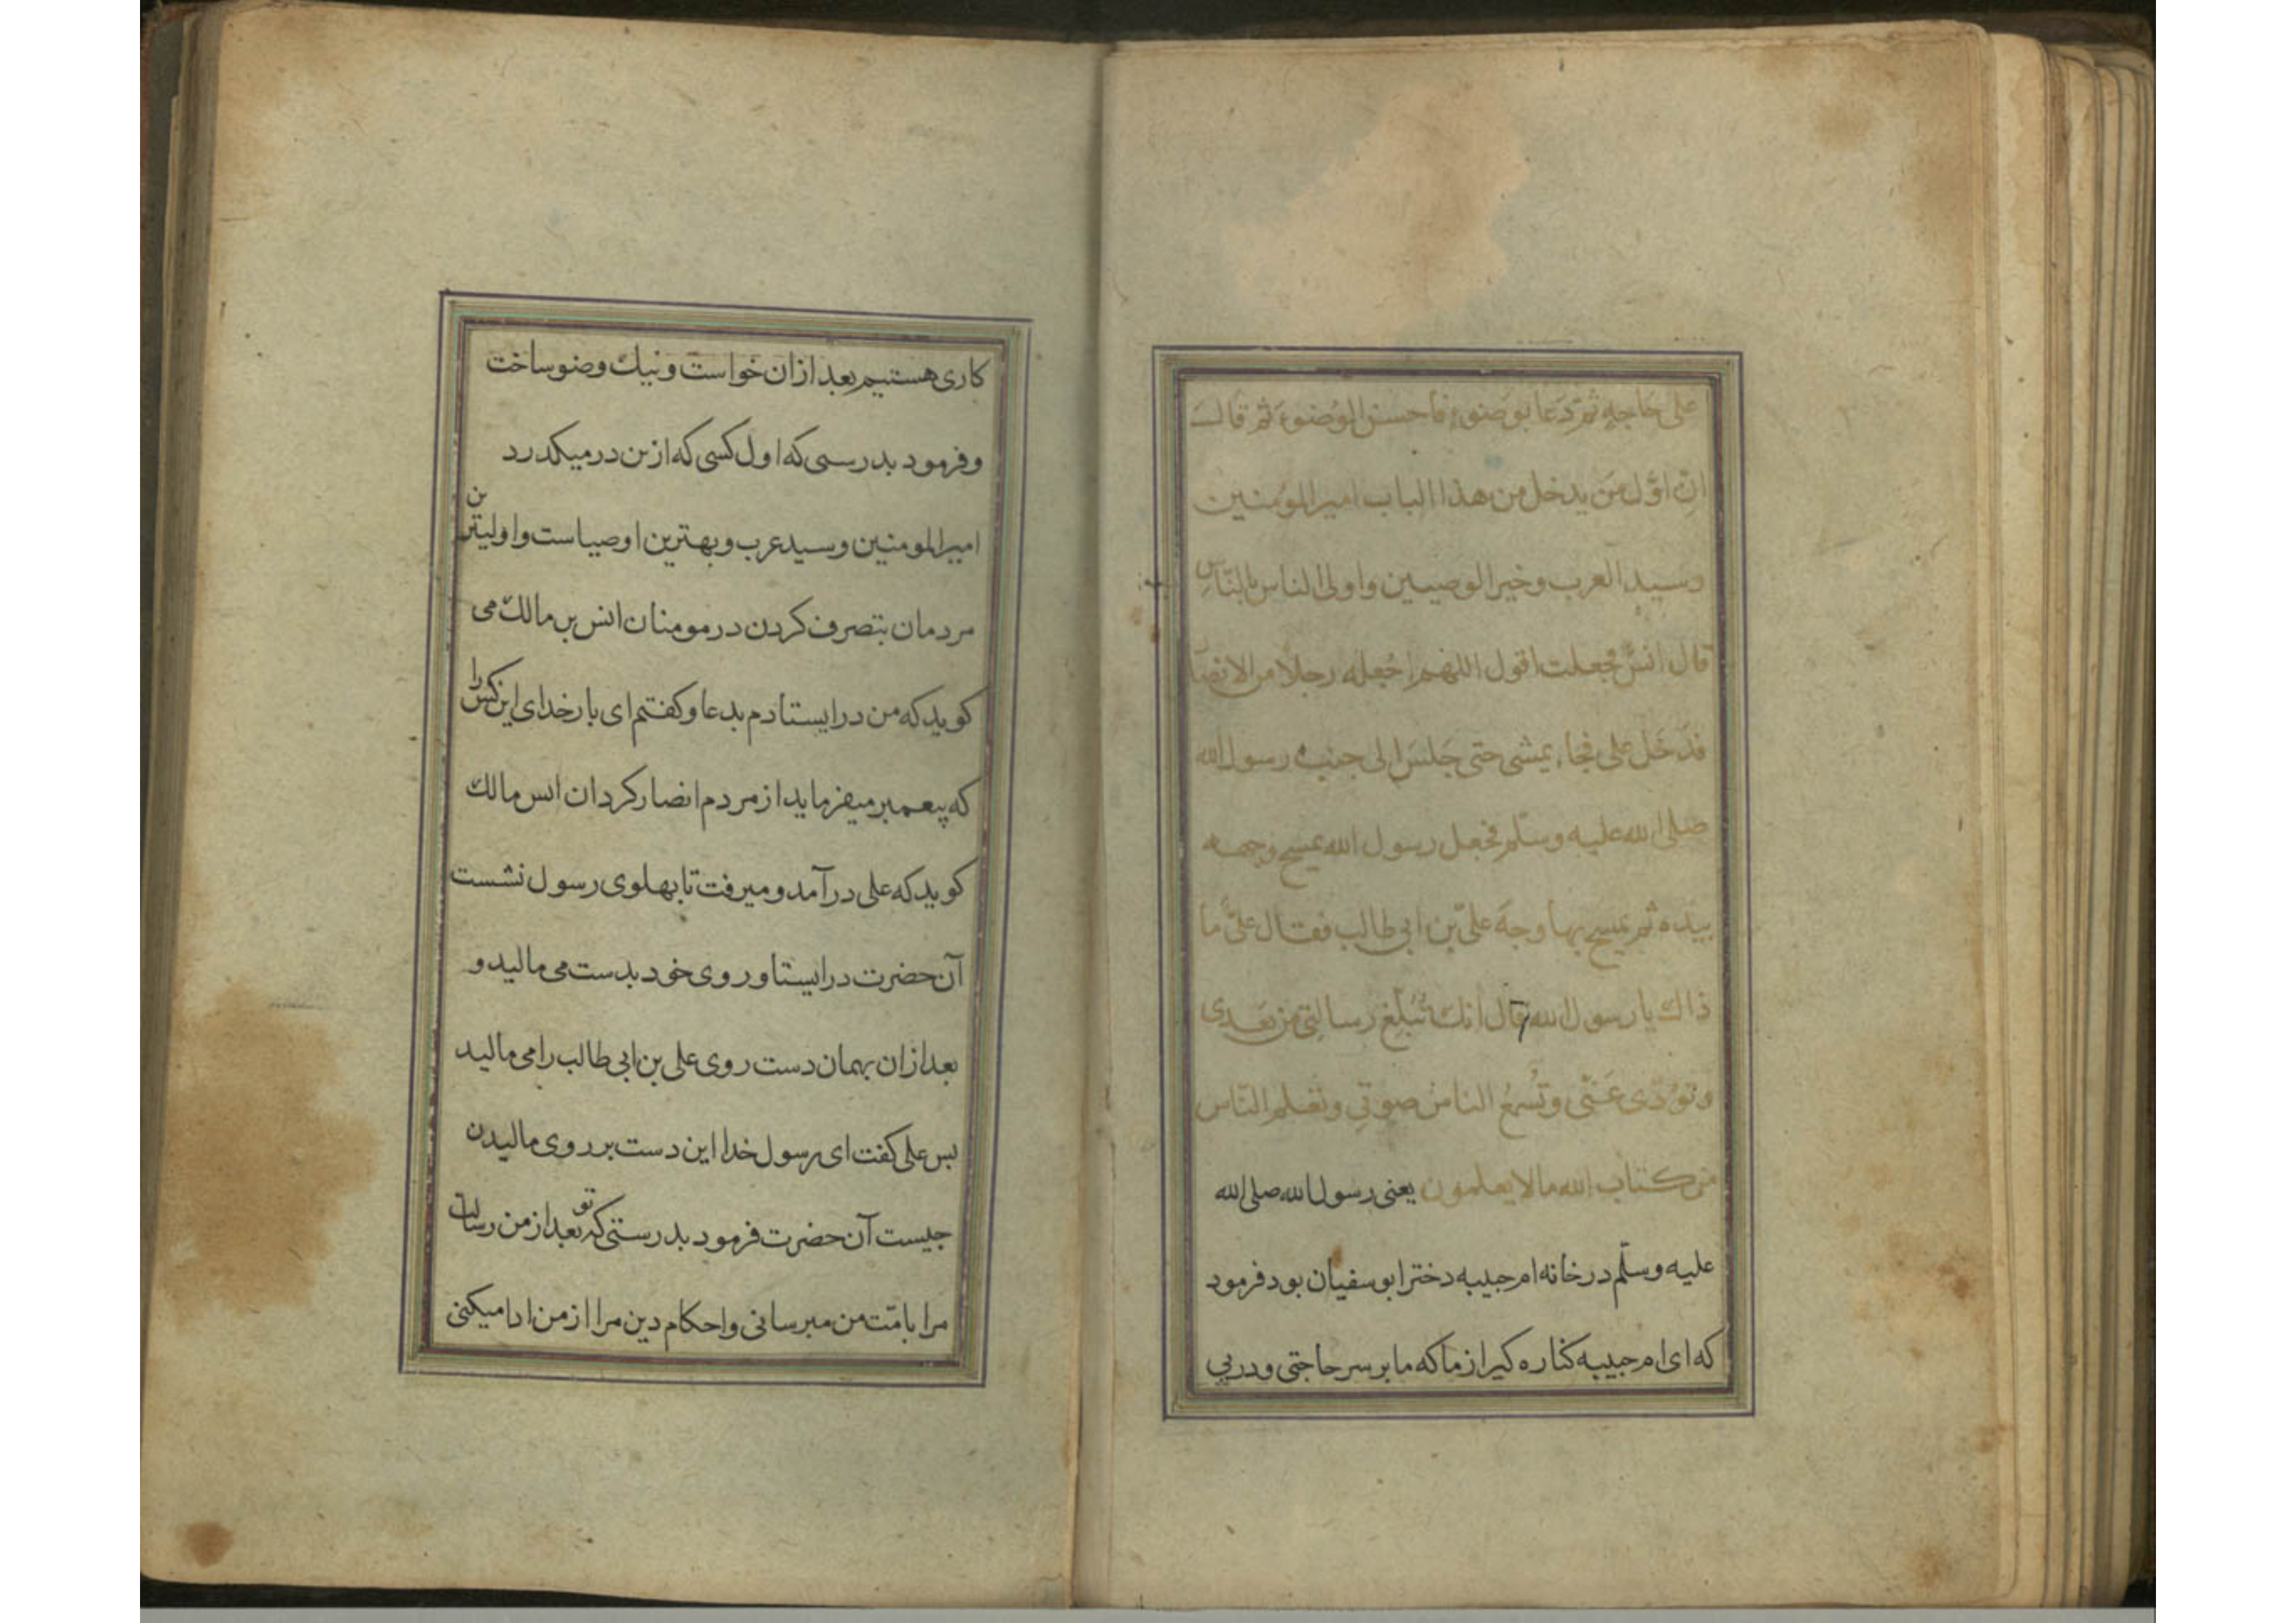 علی حاجه ثمّ دَعا بوضوءٍ فاحسن الوُضوءَ ثم قالَ
انّ اوّل مَن یدخل من هذا الباب امیر المؤمنین
وسید العرب وخیر الوصیین واولی الناس بالنّاسِ
قال انسٌ فجعلت اقول اللهم اجعله رجلاً من الانصا
فدَخَل علی فجاء یمشی حتی جَلسَ الی جنب رسول الله
صلی الله علیه وسلّم فجعل رسول الله یمسح وجهه
بیده ثم یمسح بها وجهَ علیّ بن ابی طالب فقال علیٌّ ما
ذاك یا رسول الله قال انك تُبَلّغ رسالتِی من بَعدی
وتؤدّی عَنّی وتُسمعُ الناسَ صوتِی وتعلم النّاس
من كتاب الله مالا یعلمون یعنی رسول الله صلی الله
علیه وسلّم در خانه ام حبیبه دختر ابو سفیان بود فرمود
كه ای ام حبیبه كناره كیر از ما كه ما بر سر حاجتی و در پی
كاری هستیم بعد ازان خواست ونیك وضو ساخت
وفرمود بدرستی كه اول كسی كه ازین در میكذرد
امیر المومنین وسید عرب وبهترین اوصیاست واولیترین
مردمان بتصرف كردن در مومنان انس بن مالك می
كوید كه من در ایستادم بدعا وكفتم ای بار خدای این كس را
كه پیغمبر میفرماید از مردم انصار كردان انس مالك
كوید كه علی در آمد و میرفت تا بهلوی رسول نشست
آن حضرت در ایستا و روی خود بدست می مالید و
بعد ازان بهمان دست روی علی بن ابی طالب را می مالید
بس علی كفت ای رسول خدا این دست بر روی مالیدن
جیست آن حضرت فرمود بدرستی كه تو بعد از من رسالت
مرا بامّت من میرسانی واحكام دین مرا از من ادا میكنی